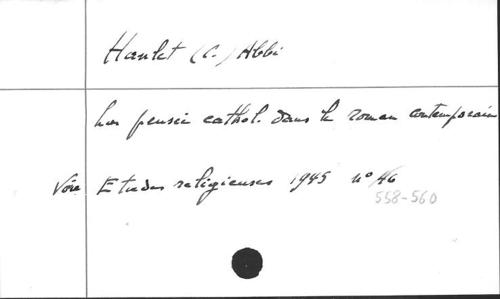 Hanlet (C.) Abbé
La pensée cathol. dans le roman contemporain
Voir Etudes religieuses 1945 n° 46
558-560